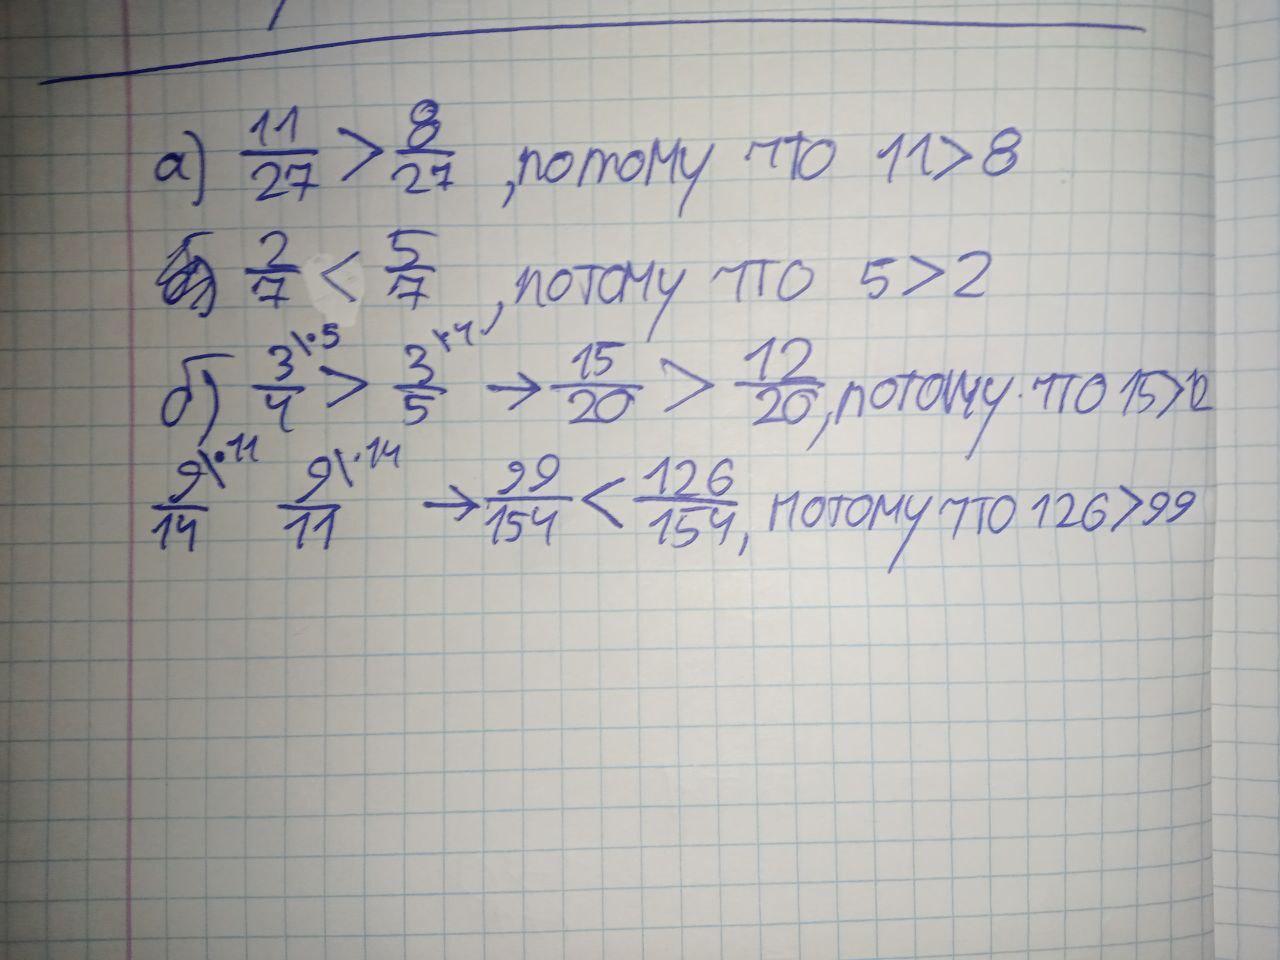 а) 11/27 > 8/27, потому что 11>8
2/7 < 5/7, потому что 5>2
б) 3\·5/4 > 3\·4/5 → 15/20 > 12/20, потому что 15>12
9\·11/14 9\·14/11 → 99/154 < 126/154, потому что 126>99